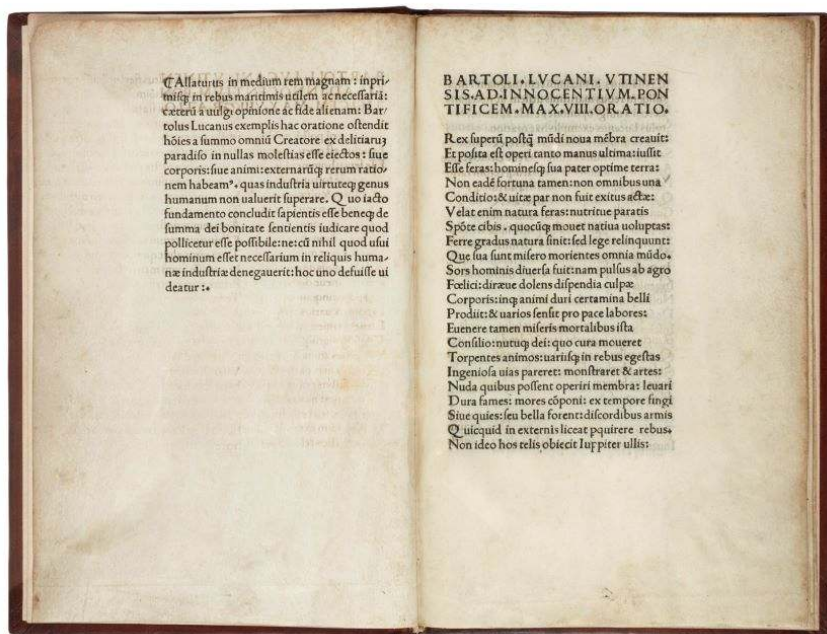 ⸿Allaturus in medium rem magnam: inpri-
misq; in rebus maritimis utilem ac necessariã:
cæterũ a uulgi opinione ac fide alienam: Bar-
tolus Lucanus exemplis hac oratione ostendit
hõies a summo omniũ Creatore ex delitiaruꝫ
paradiso in nullas molestias esse eiectos: siue
corporis: siue animi: externarũq; rerum ratio-
nem habeamꝰ. quas industria uirtuteq; genus
humanum non ualuerit superare. Quo iacto
fundamento concludit sapientis esse beneq; de
summa dei bonitate sentientis iudicare quod
pollicetur esse possibile: ne: cũ nihil quod usui
hominum esset necessarium in reliquis huma-
næ industriæ denegauerit: hoc uno defuisse ui
deatur:.
BARTOLI. LVCANI. VTINEN
SIS. AD. INNOCENTIVM. PON
TIFICEM. MAX. VIII. ORATIO.
Rex superũ postq̃ mũdi noua mẽbra creauit:
Et posita est operi tanto manus ultima: iussit
Esse feras: hominesq; sua pater optime terra:
Non eadẽ fortuna tamen: non omnibus una
Conditio: & uitæ par non fuit exitus actæ:
Velat enim natura feras: nutritue paratis
Spõte cibis. quocũq; mouet natiua uoluptas:
Ferre gradus natura sinit: sed lege relinquunt:
Que sua sunt misero morientes omnia mũdo.
Sors hominis diuersa fuit: nam pulsus ab agro
Fœlici: diræue dolens dispendia culpæ
Corporis: inq; animi duri certamina belli
Prodiit: & uarios sensit pro pace labores:
Euenere tamen miseris mortalibus ista
Consilio: nutuq; dei: quo cura moueret
Torpentes animos: uariisq; in rebus egestas
Ingeniosa uias pareret: monstraret & artes:
Nuda quibus possent operiri membra: leuari
Dura fames: mores cõponi: ex tempore fingi
Siue quies: seu bella forent: discordibus armis
Quicquid in externis liceat ꝑquirere rebus.
Non ideo hos telis obiecit Iuppiter ullis: